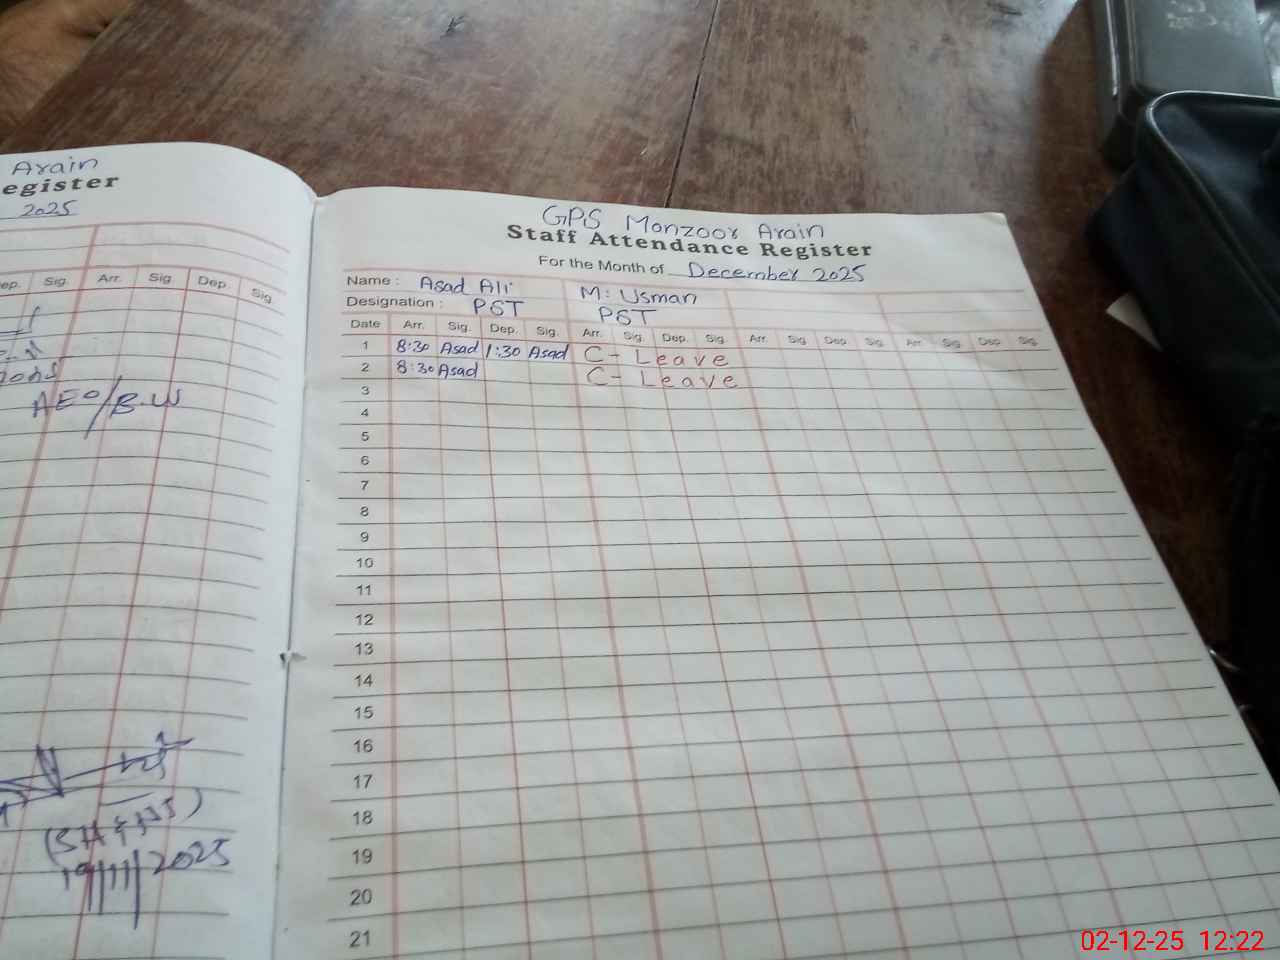 Arain
egister
2025
ep. Sig. Arr. Sig Dep. Sig.
AEO/B.W
19/11/2025
GPS Manzoor Arain
Staff Attendance Register
For the Month of December 2025
Name : Asad Ali M: Usman
Designation : PST PST
Date Arr. Sig. Dep. Sig. Arr. Sig. Dep. Sig. Arr. Sig Dep. Sig. Arr. Sig Dep. Sig.
1 8:30 Asad 1:30 Asad C- Leave
2 8:30 Asad C- Leave
3
4
5
6
7
8
9
10
11
12
13
14
15
16
17
18
19
20
21
02-12-25 12:22